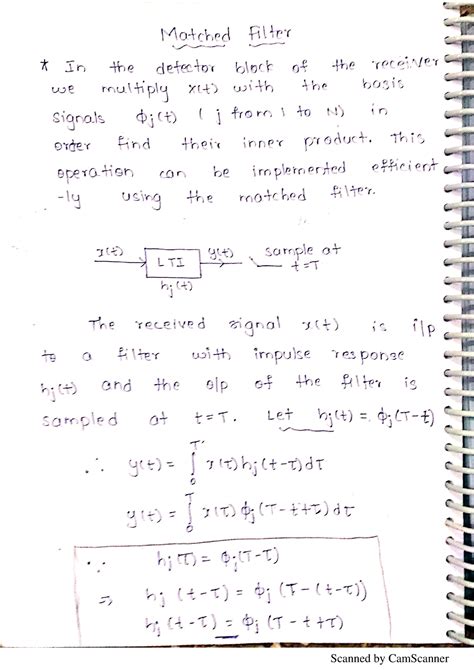 Matched Filter
* In the detector block of the receiver
we multiply x(t) with the basis
signals φj(t) ( j from 1 to N) in
order find their inner product. This
operation can be implemented efficient
-ly using the matched filter.
x(t) LTI yj(t) sample at
t=T
hj(t)
The received signal x(t) is i/p
to a filter with impulse response
hj(t) and the o/p of the filter is
sampled at t=T. Let hj(t) = φj(T-t)
∴ y(t) = ∫₀ᵀ x(τ) hj(t-τ)dτ
y(t) = ∫₀ᵀ x(τ) φj(T-t+τ)dτ
∵ hj(τ) = φj(T-τ)
⇒ hj (t-τ) = φj (T-(t-τ))
hj (t-τ) = φj (T-t+τ)
Scanned by CamScanner